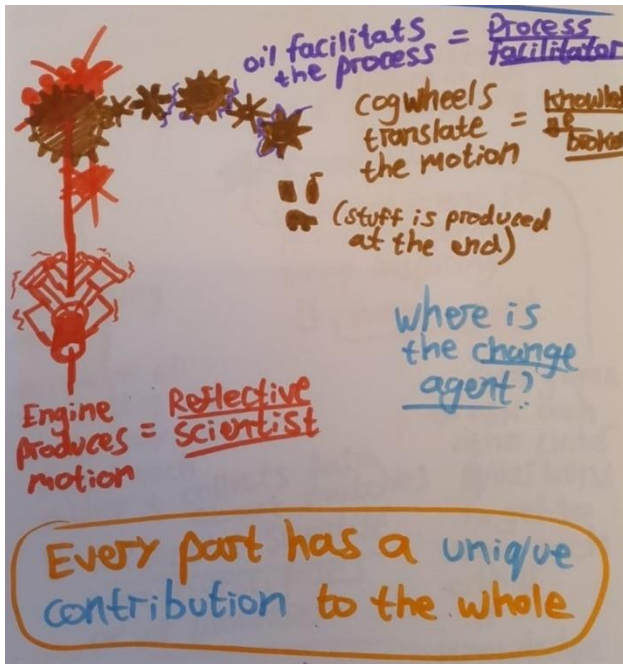 oil facilitats = Process
the process Facilitator
cogwheels
translate =
the motion
(stuff is produced
at the end)
where is
the change
agent?
Engine
produces = Reflective
motion scientist
Every part has a unique
contribution to the whole